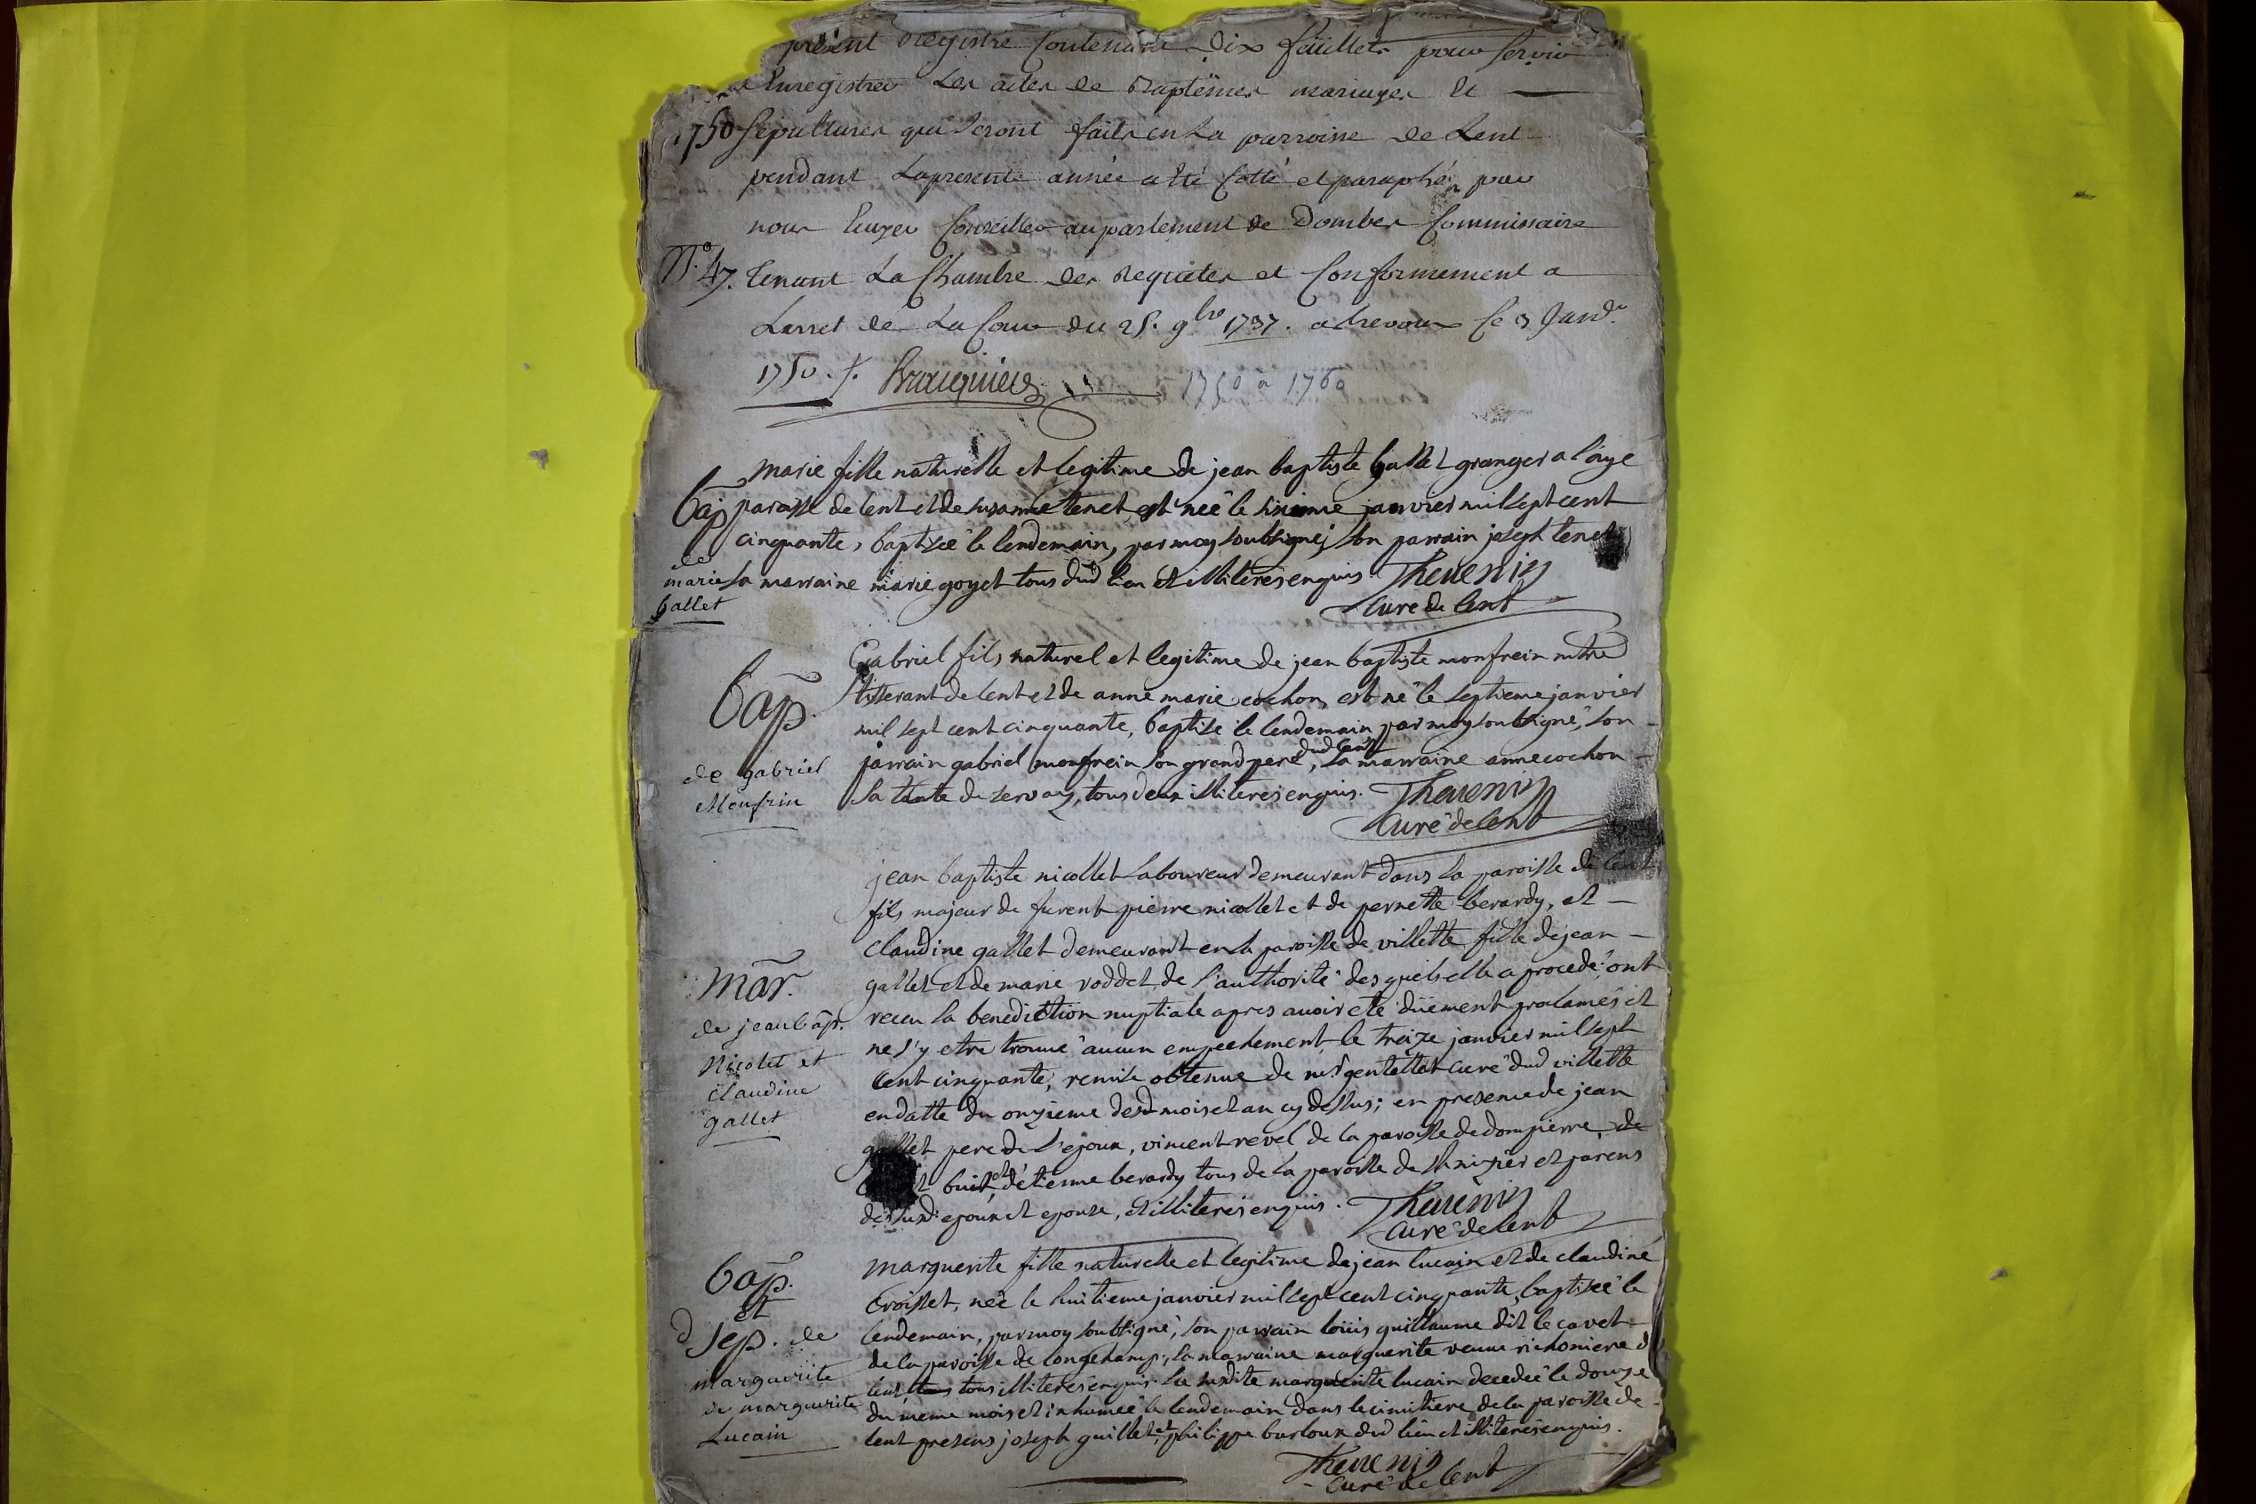 present Registre Contenant Dix feüillets pour servir
a Enregistrer Les actes de Baptêmes mariages et
1750 sepultures qui seront faits en La parroisse de Lent
pendant La presente année a êté Cotté et paraphé par
nous Ecuyer Conseiller au parlement de Dombes Commissaire
N.º 47. Tenant La Chambre des Requêtes et Conformement a
Larret de La Cour du 25. 9bre 1737. a Trevoux Ce 3 Janv.r
1750.
1750 a 1760
marie fille naturelle et legitime de jean baptiste gallet granger a
Bap paroisse de lent et de susanne tenet est née le janvier mil sept cent
cinquante, baptisée le lendemain, par moy soubsigné, son parrain joseph tenet
de
marie la marraine marie goyet tous dud lieu et illiterés enquis. Thevenin
gallet
curé de lent
Gabriel fils naturel et legitime de jean baptiste monfrein mtre
Bap. tisserant de lent et de anne marie cochon est né le septieme janvier
mil sept cent cinquante, baptisé le lendemain par moy soubsigné, son
de gabriel parrain gabriel monfrein son grand pere dud lent, la marraine anne cochon
Monfrin sa tante de servas, tous deux illiterés enquis. Thevenin
curé de lent
jean baptiste nicollet laboureur demeurant dans la paroisse de lent
fils majeur de furent pierre nicollet et de pernette berardy, et
claudine gallet demeurant en la paroisse de villette fille de jean
mar. gallet et de marie roddet de l'authorité des quels elle a procedé, ont
de jean bap. receu la benediction nuptiale apres avoir eté düement proclamés et
Nicolet et ne s'y etre trouvé aucun empechement le treize janvier mil sept
claudine cent cinquante, remise obtenue de mr gentellet curé dud villette
gallet en datte du onzieme desd mois et an cy dessus; en presence de jean
gallet pere de l'epoux, vincent revel de la paroisse de dompierre, de
buit et d'etienne berardy tous de la paroisse de st nizier et parens
desusd: epoux et epouse, et illiterés enquis. Thevenin
curé de lent
Bap. marguerite fille naturelle et legitime de jean lucain et de claudine
et croisset, née le huitieme janvier mil sept cent cinquante, baptisée le
sep. de lendemain, par moy soubsigné, son parrain loüis guillaume dit le cavet
marguerite de la paroisse de longchamp, la marraine marguerite veuve richoniere d
de marguerite lent tous illiterés enquis. la susdite marguerite lucain decedée le douze
Lucain du meme mois et inhumée le lendemain dans le cimitiere de la paroisse de
lent presens joseph guillet et philippe burloux dud lieu et illiterés enquis.
Thevenin
curé de lent